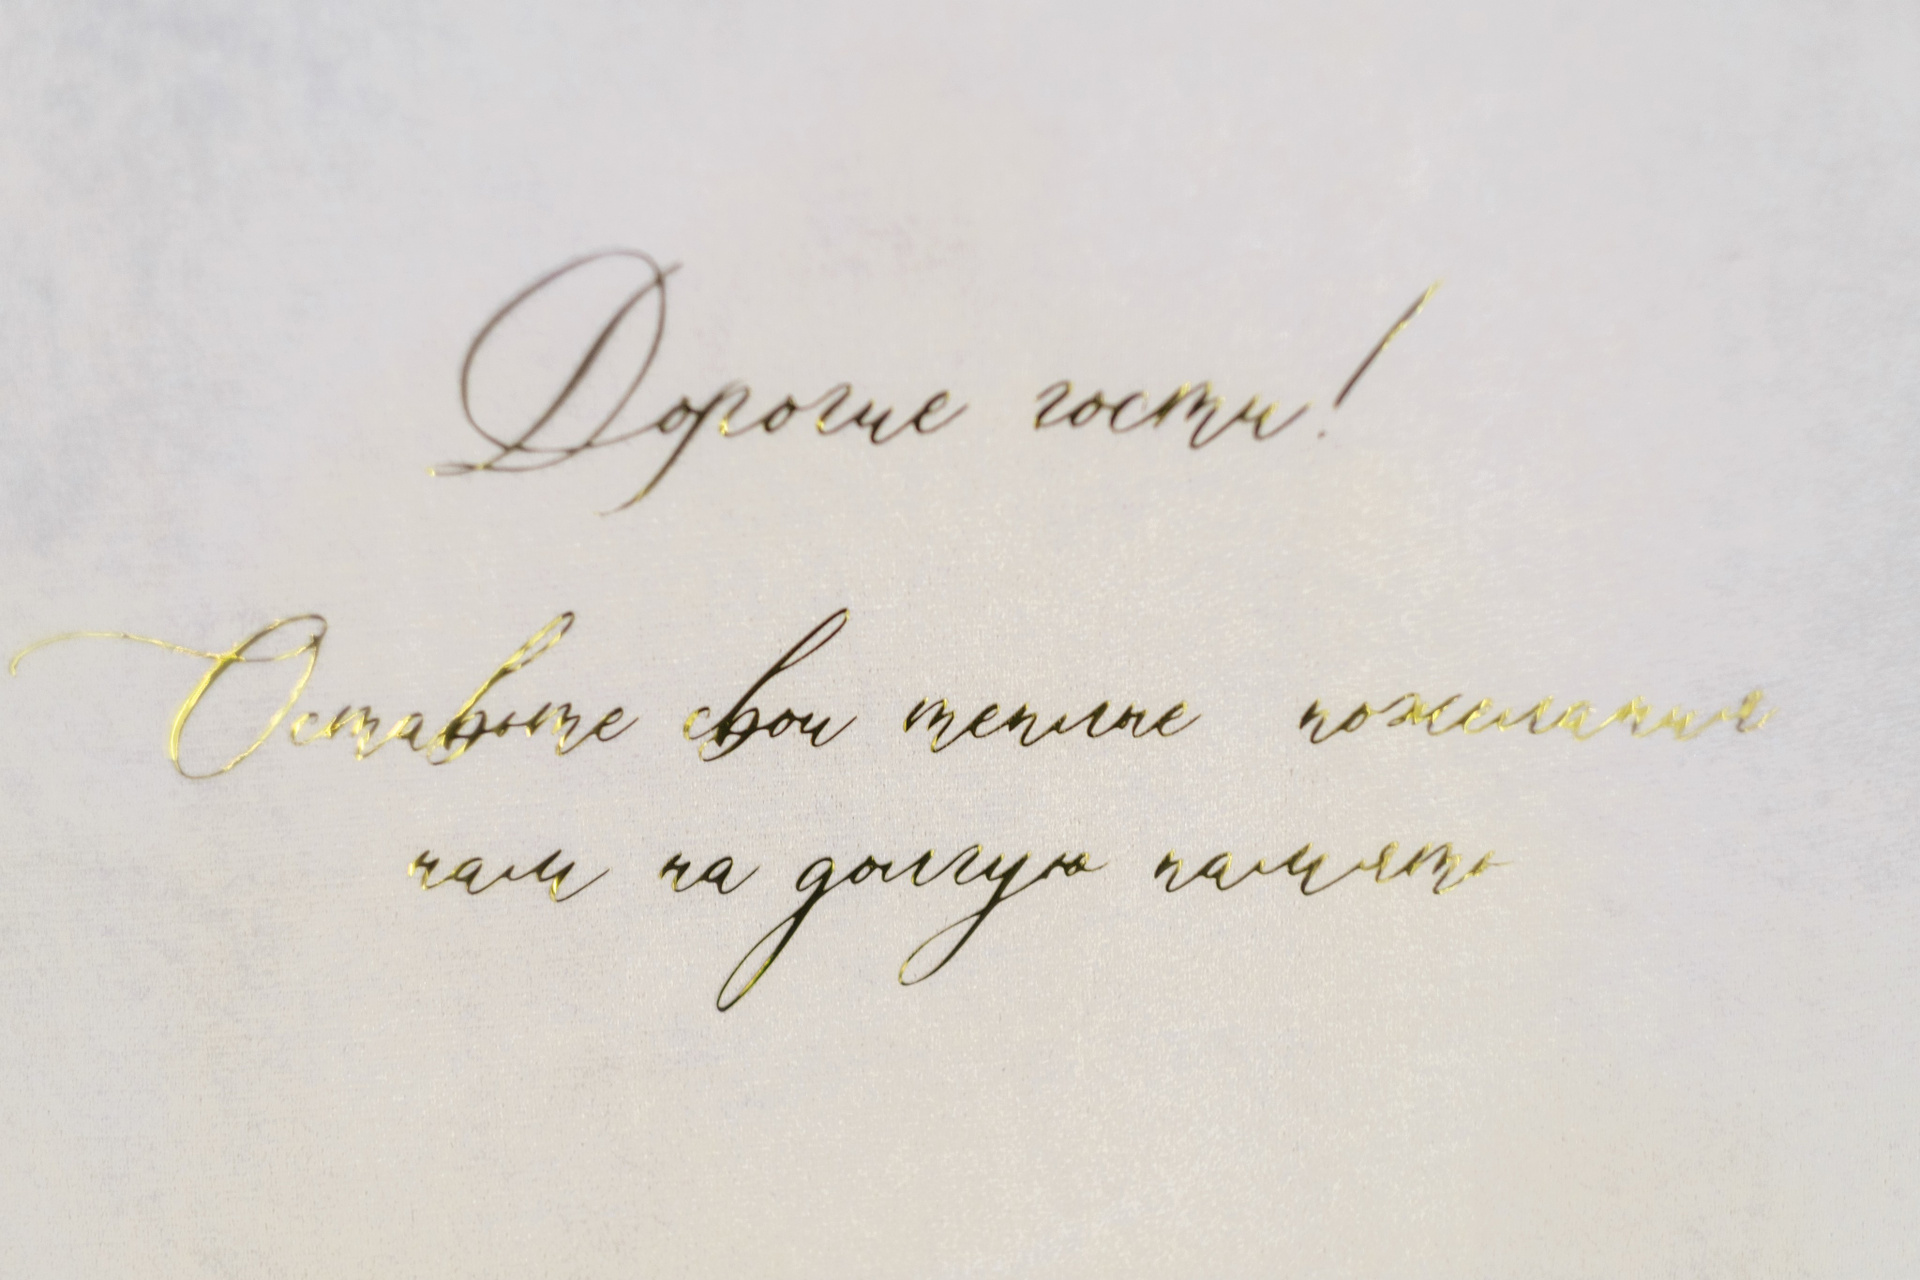 Дорогие гости!
Оставьте свои теплые пожелания
нам на долгую память